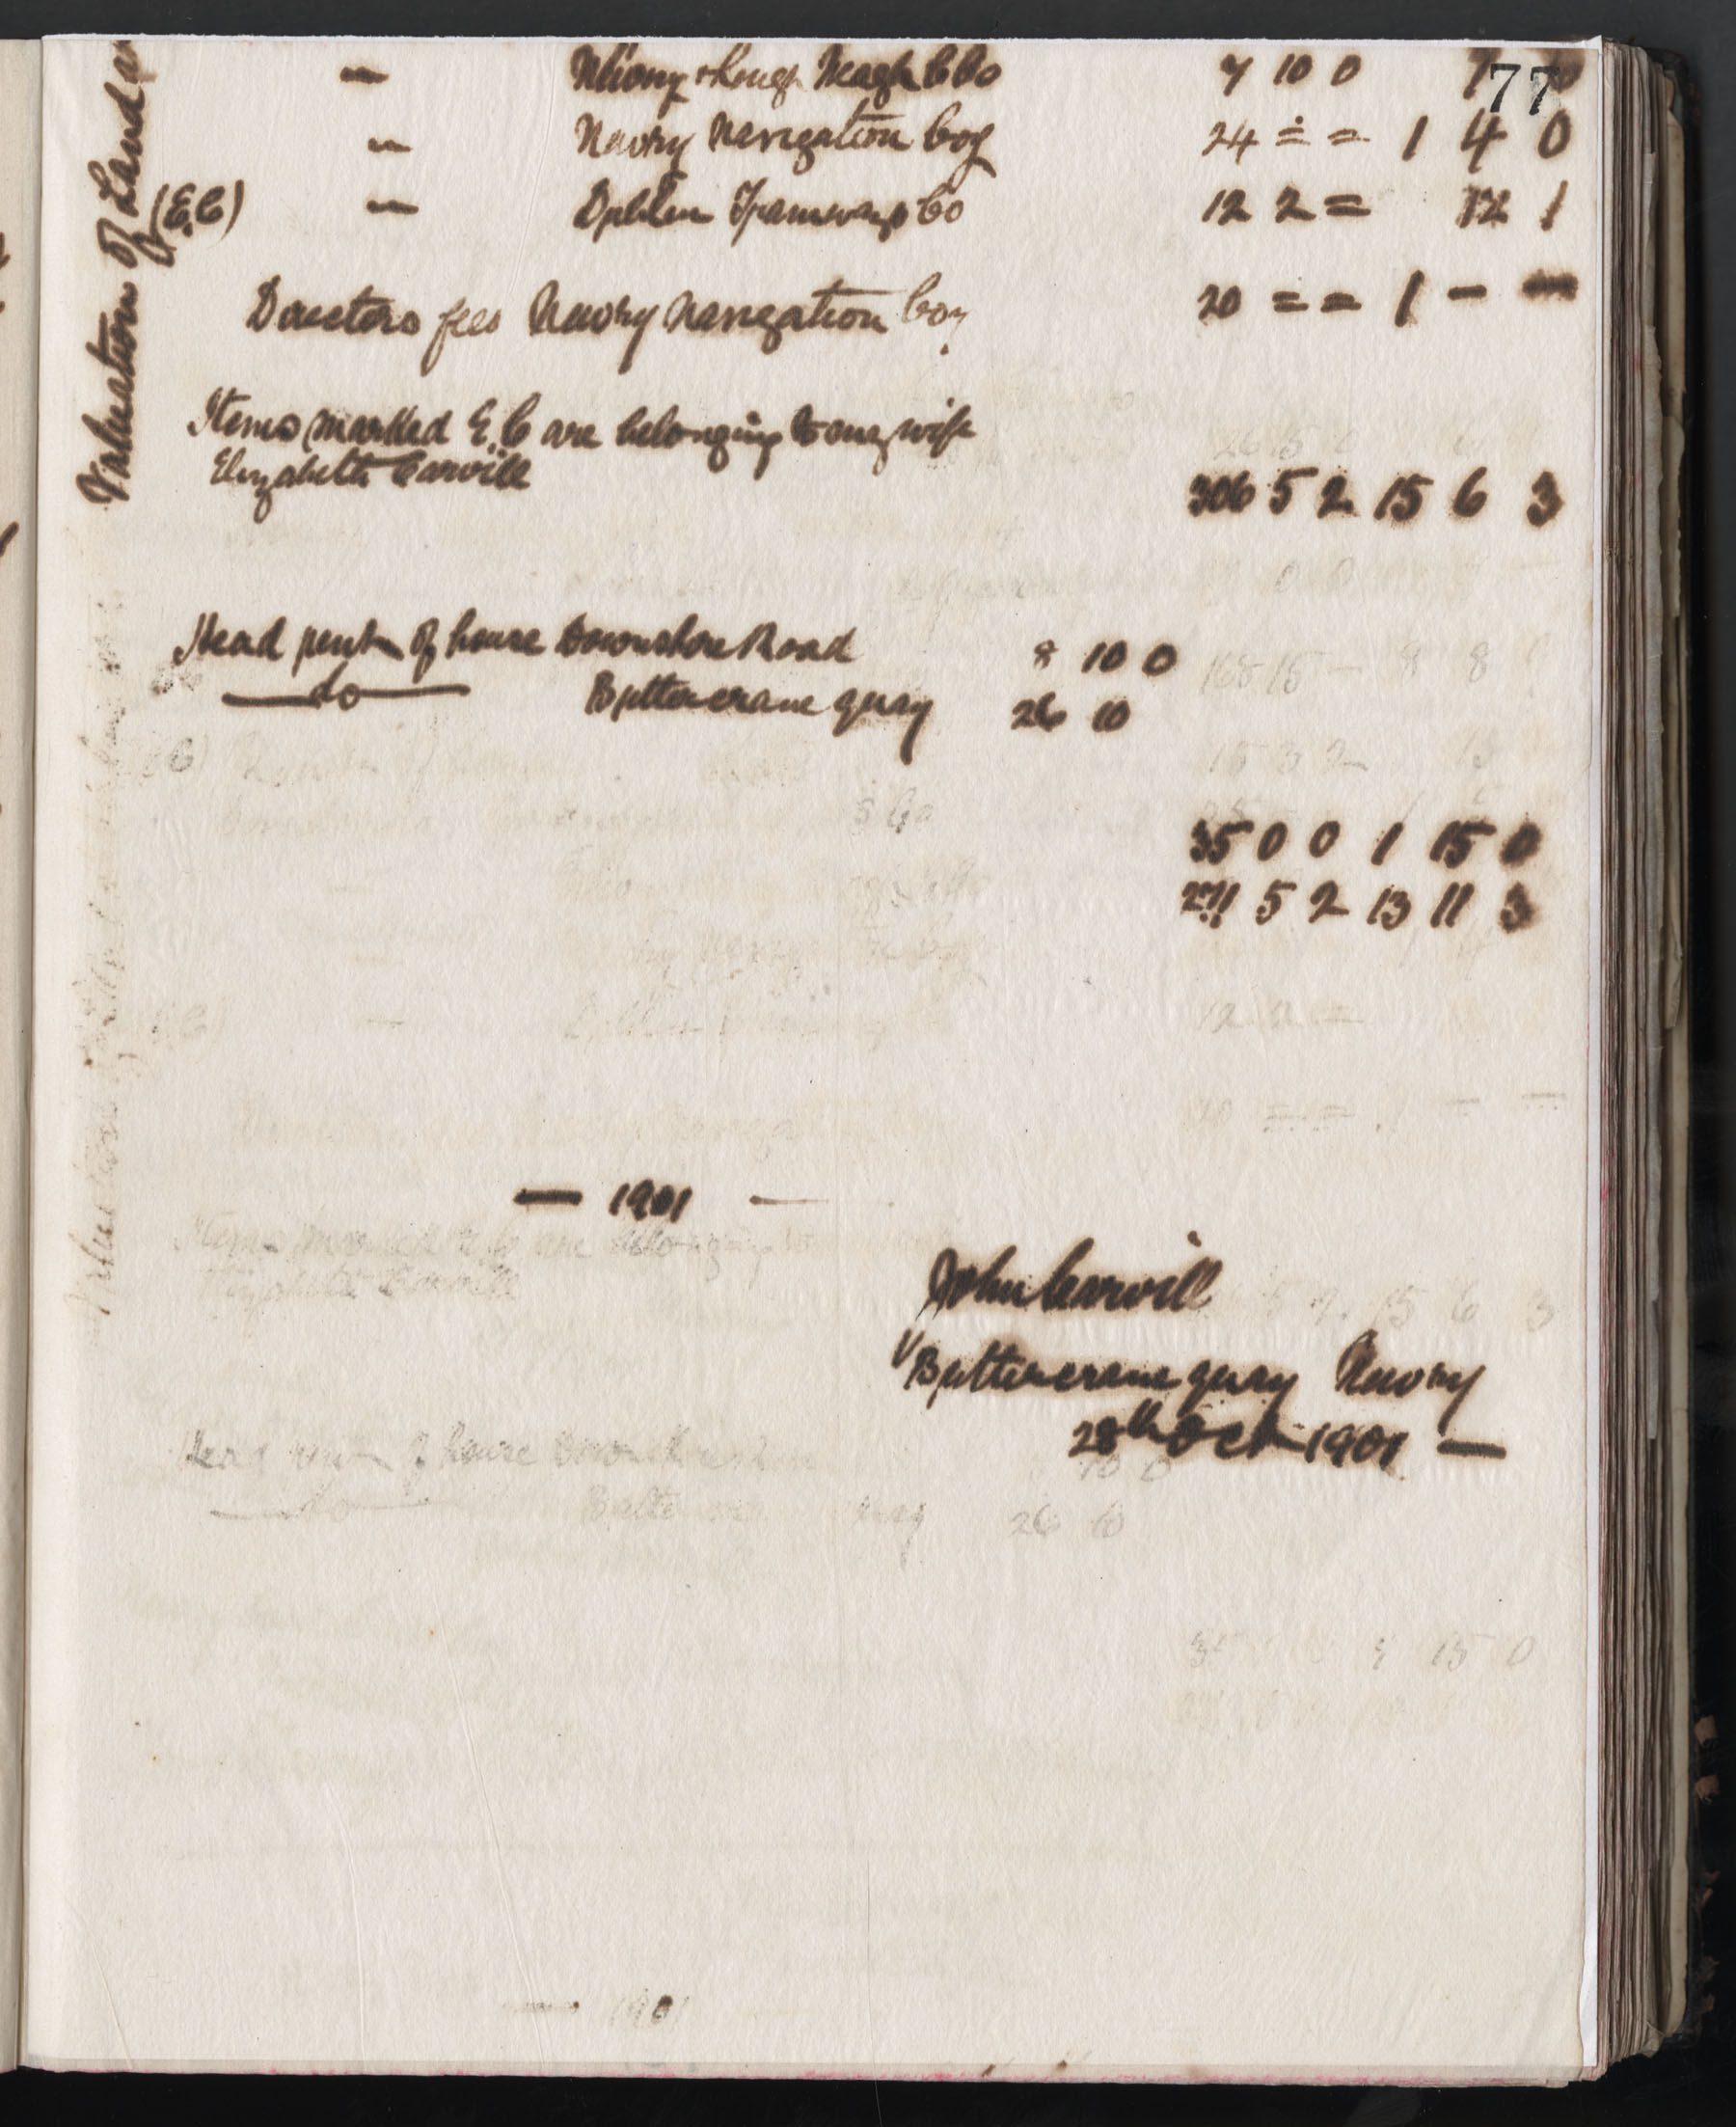 77
Valuation of Land
— & Lough Neagh C Co 7 10 0
— Newry Navigation Coy 24 = = 1 4 0
(E.C) — Dublin Tramways Co 12 2 = 12 1
Directors fees Newry Navigation Coy 20 = = 1 — —
Items marked E.C are belonging to my wife
Elizabeth Carvill
306 5 2 15 6 3
Head rent of house Downshire Road 8 10 0
—do— Buttercrane quay 26 10
35 0 0 1 15 0
271 5 2 13 11 3
— 1901 —
John Carvill
Buttercrane quay Newry
28th Oct 1901 —